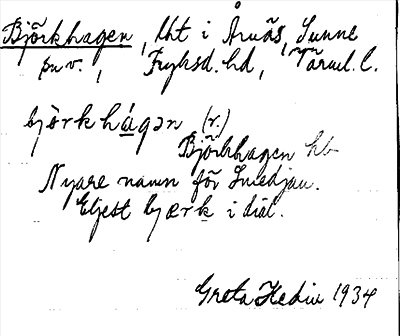 Björkhagen, lht i Årnäs, Sunne
sn v., Fryksd. hd, Värml. l.
bjòrkhágən (r.)
Björkhagen hb
Nyare namn för Smedjan.
Eljest bjærk i dial.
Greta Hedin 1934